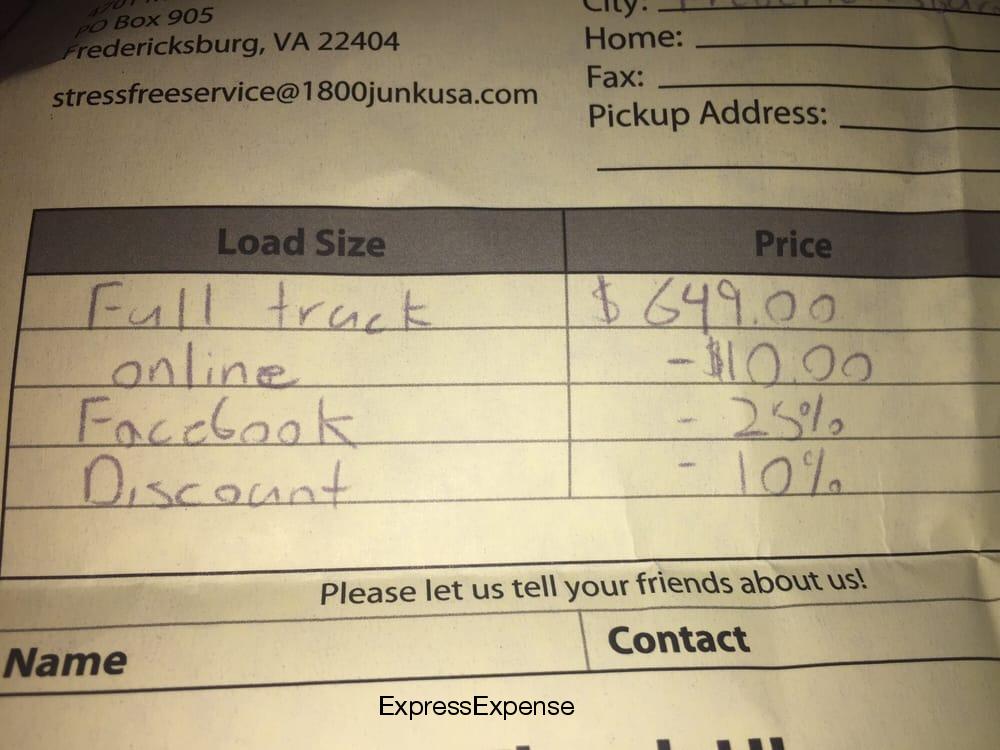 PO Box 905
Fredericksburg, VA 22404
stressfreeservice@1800junkusa.com
City:
Home:
Fax:
Pickup Address:
Load Size Price
Full truck $649.00
online -$10.00
Facebook - 25%
Discount - 10%
Please let us tell your friends about us!
Name Contact
ExpressExpense